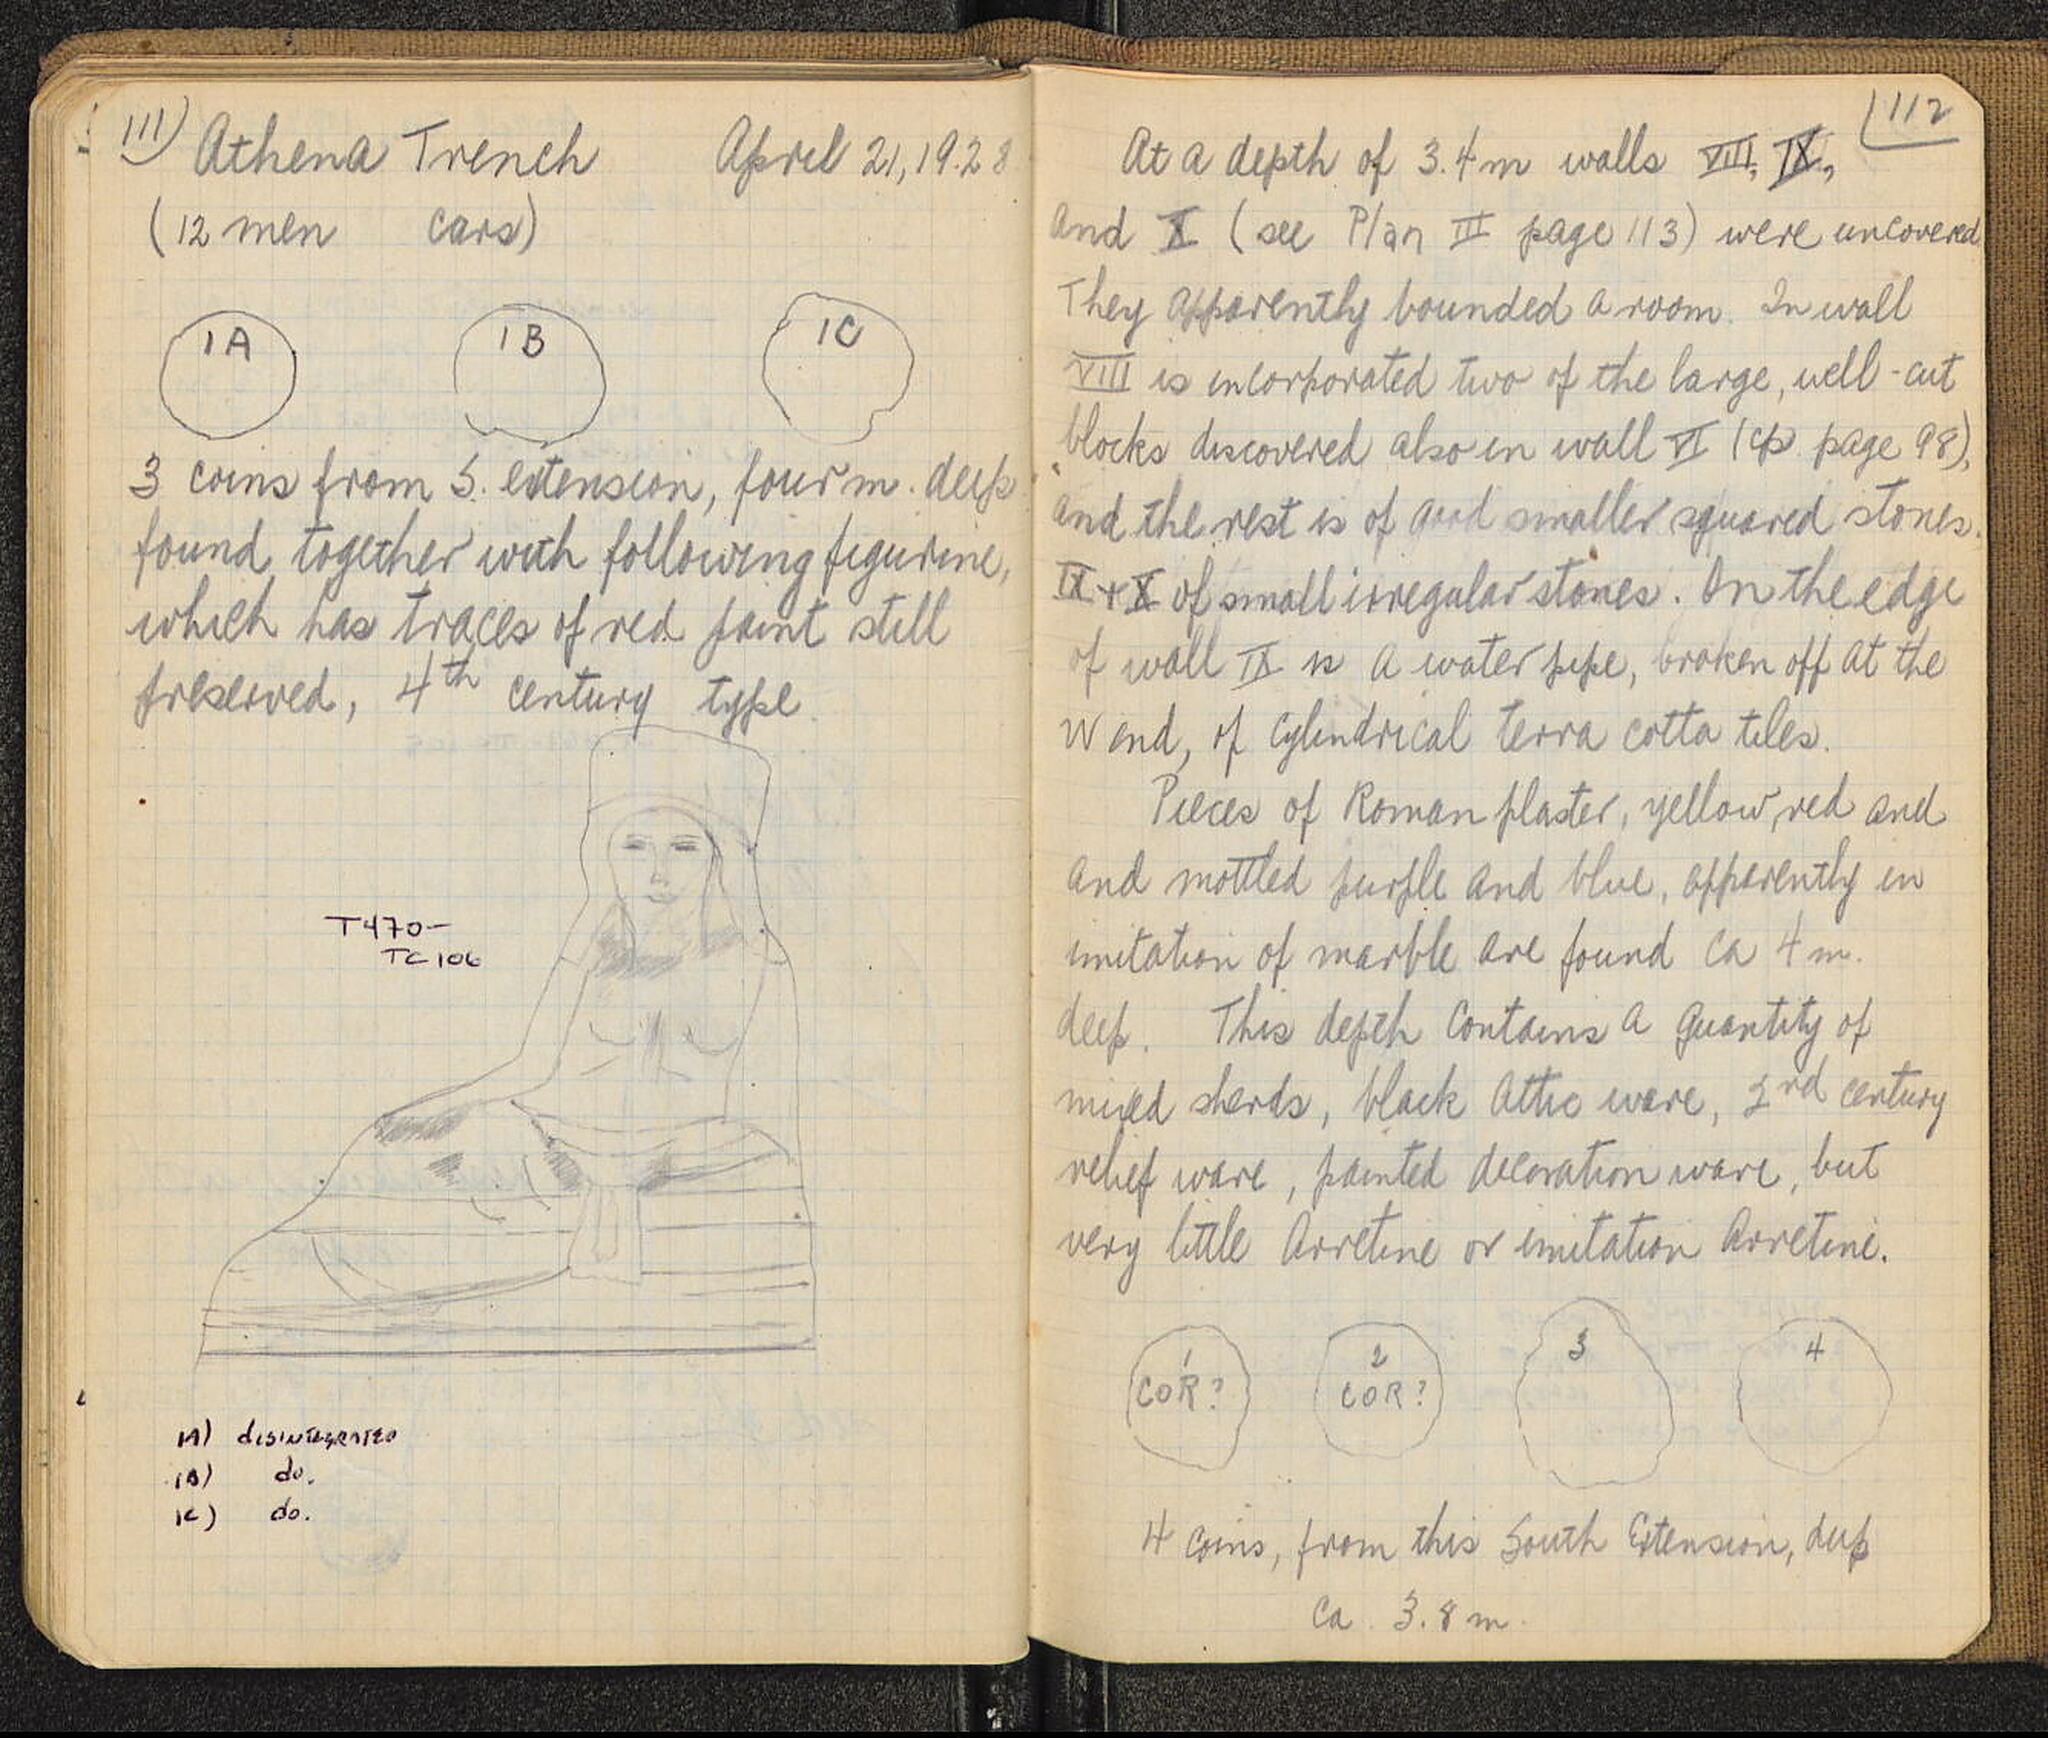 111)
Athena Trench April 21, 1928
(12 men cars)
1A 1B 1C
3 coins from S. extension, four m. deep
found together with following figurine,
which has traces of red paint still
preserved, 4th century type.
T470-
TC 106
1A) disintegrated
1B) do.
1C) do.
112
At a depth of 3.4 m walls VIII, IX,
and X (see Plan III page 113) were uncovered
They apparently bounded a room. In wall
VIII is incorporated two of the large, well-cut
blocks discovered also in wall VI (cp. page 98),
and the rest is of good smaller squared stones.
IX + X of small irregular stones. On the edge
of wall IX is a water pipe, broken off at the
W end, of cylindrical terra cotta tiles.
Pieces of Roman plaster, yellow, red and
and mottled purple and blue, apparently in
imitation of marble are found ca 4 m.
deep. This depth contains a quantity of
mixed sherds, black Attic ware, 3rd century
relief ware, painted decoration ware, but
very little Arretine or imitation Arretine.
1 2 3 4
COR? COR?
4 coins, from this South Extension, deep
ca. 3.8 m.